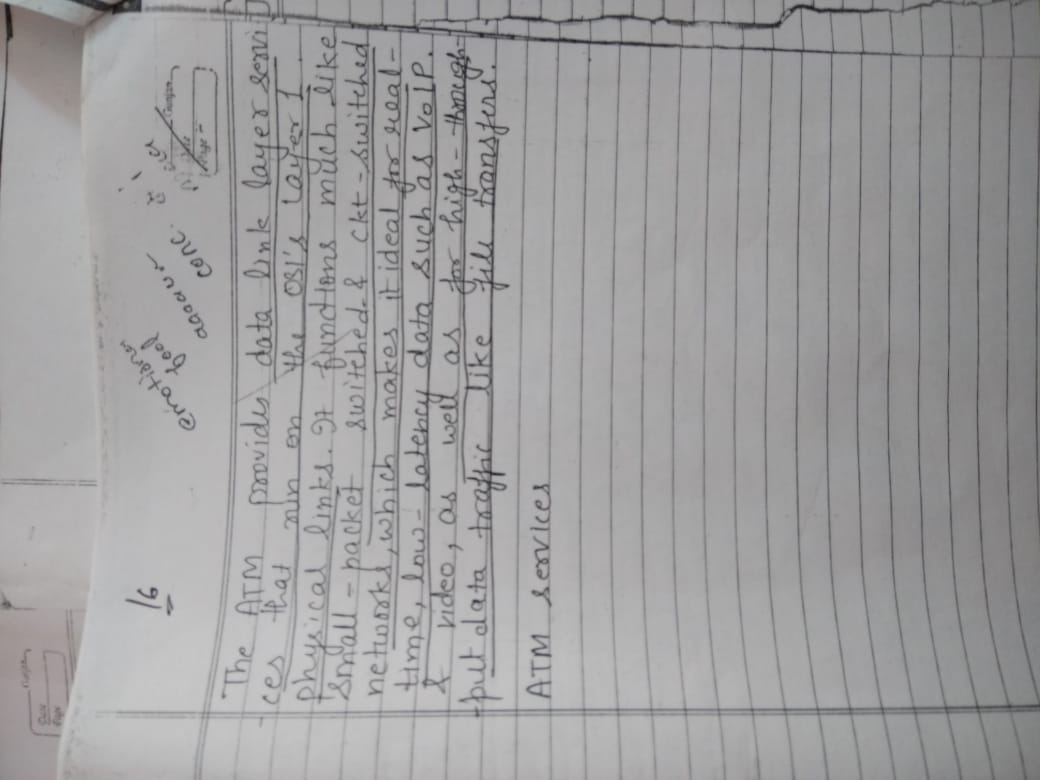 16
The ATM provides data link layer servi
- ces that run on the OSI's Layer 1
physical links. It functions much like
small-packet switched & ckt-switched
networks, which makes it ideal for real-
time, low-latency data such as VoIP.
& video, as well as for high-through-
-put data traffic like file transfers.
ATM services
conc.
feel
Date
Page
Page